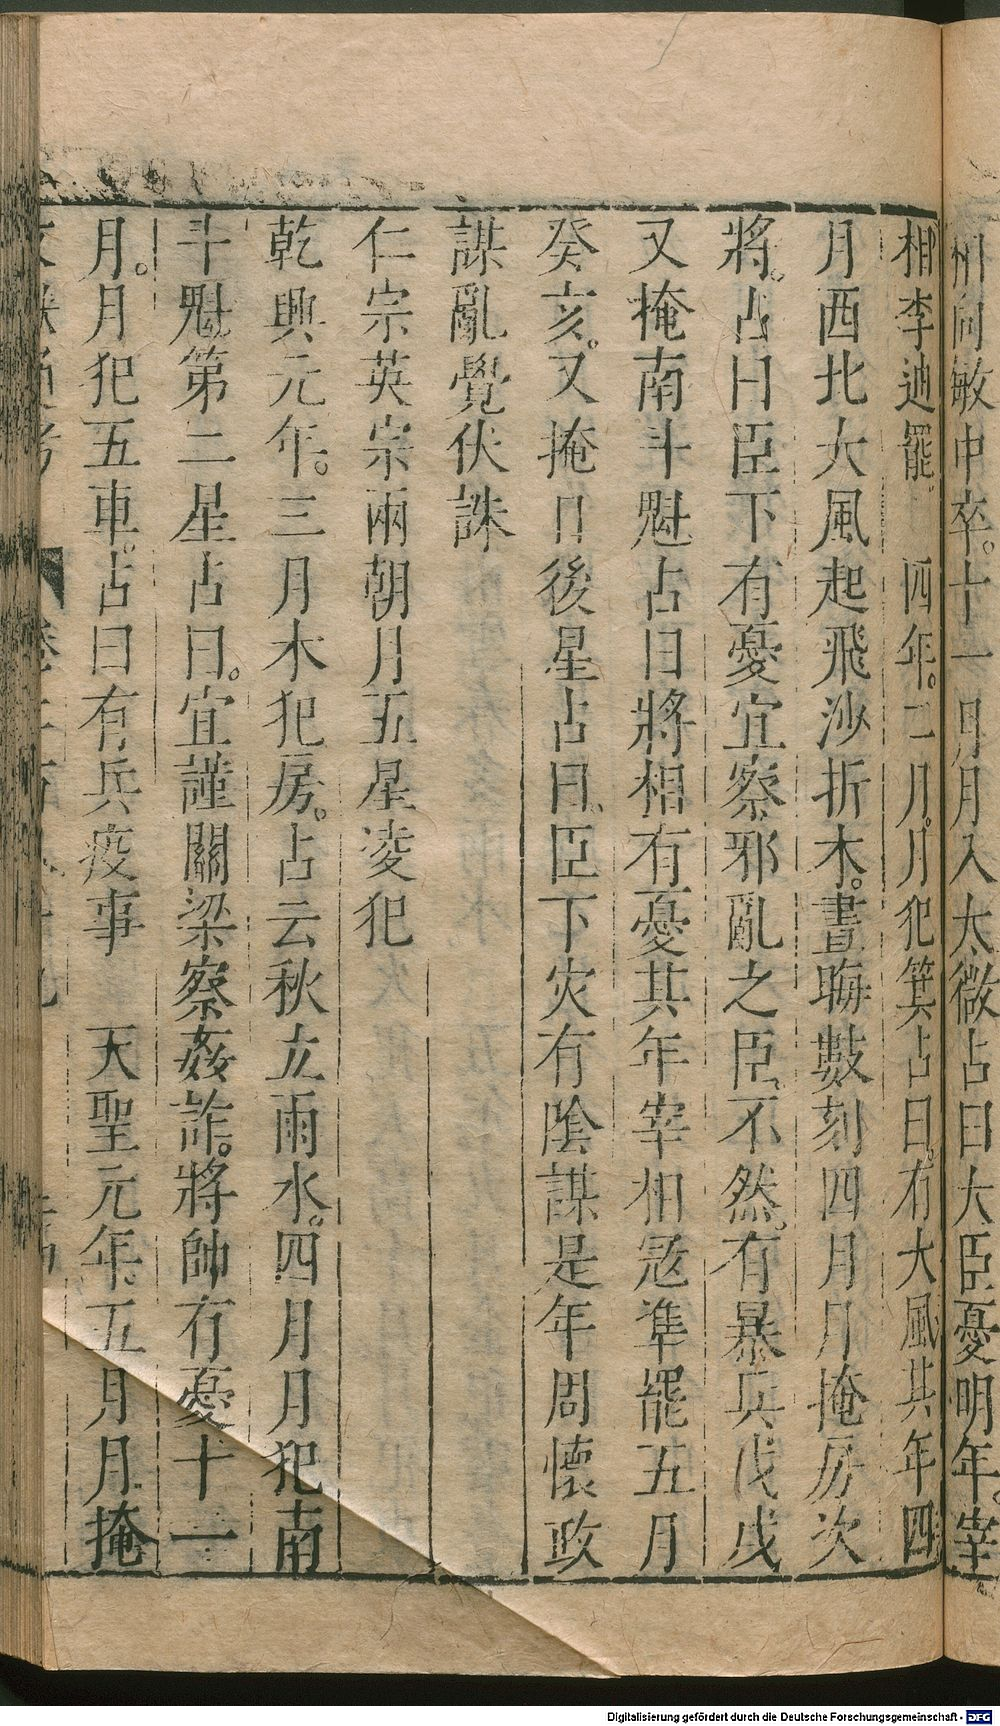 州向敏中卒。十一月月入太微占曰大臣憂明年。宰
相李迪罷　四年。二月。月犯箕占曰。有大風其年四
月西北大風起飛沙折木。晝晦數刻四月月掩房次
將。占曰臣下有憂宜察邪亂之臣。不然。有暴兵。戊戌
又掩南斗魁占曰將相有憂其年宰相寇準罷五月
癸亥。又掩日後星占曰。臣下灾有陰謀是年周懷政
謀亂覺伏誅
仁宗英宗兩朝月五星凌犯
乾興元年。三月木犯房。占云秋立雨水。四月月犯南
斗魁第二星占曰。宜謹關梁察姦詐。將帥有憂十一
月。月犯五車。占曰有兵疫事　天聖元年。五月月掩
Digitalisierung gefördert durch die Deutsche Forschungsgemeinschaft - DFG